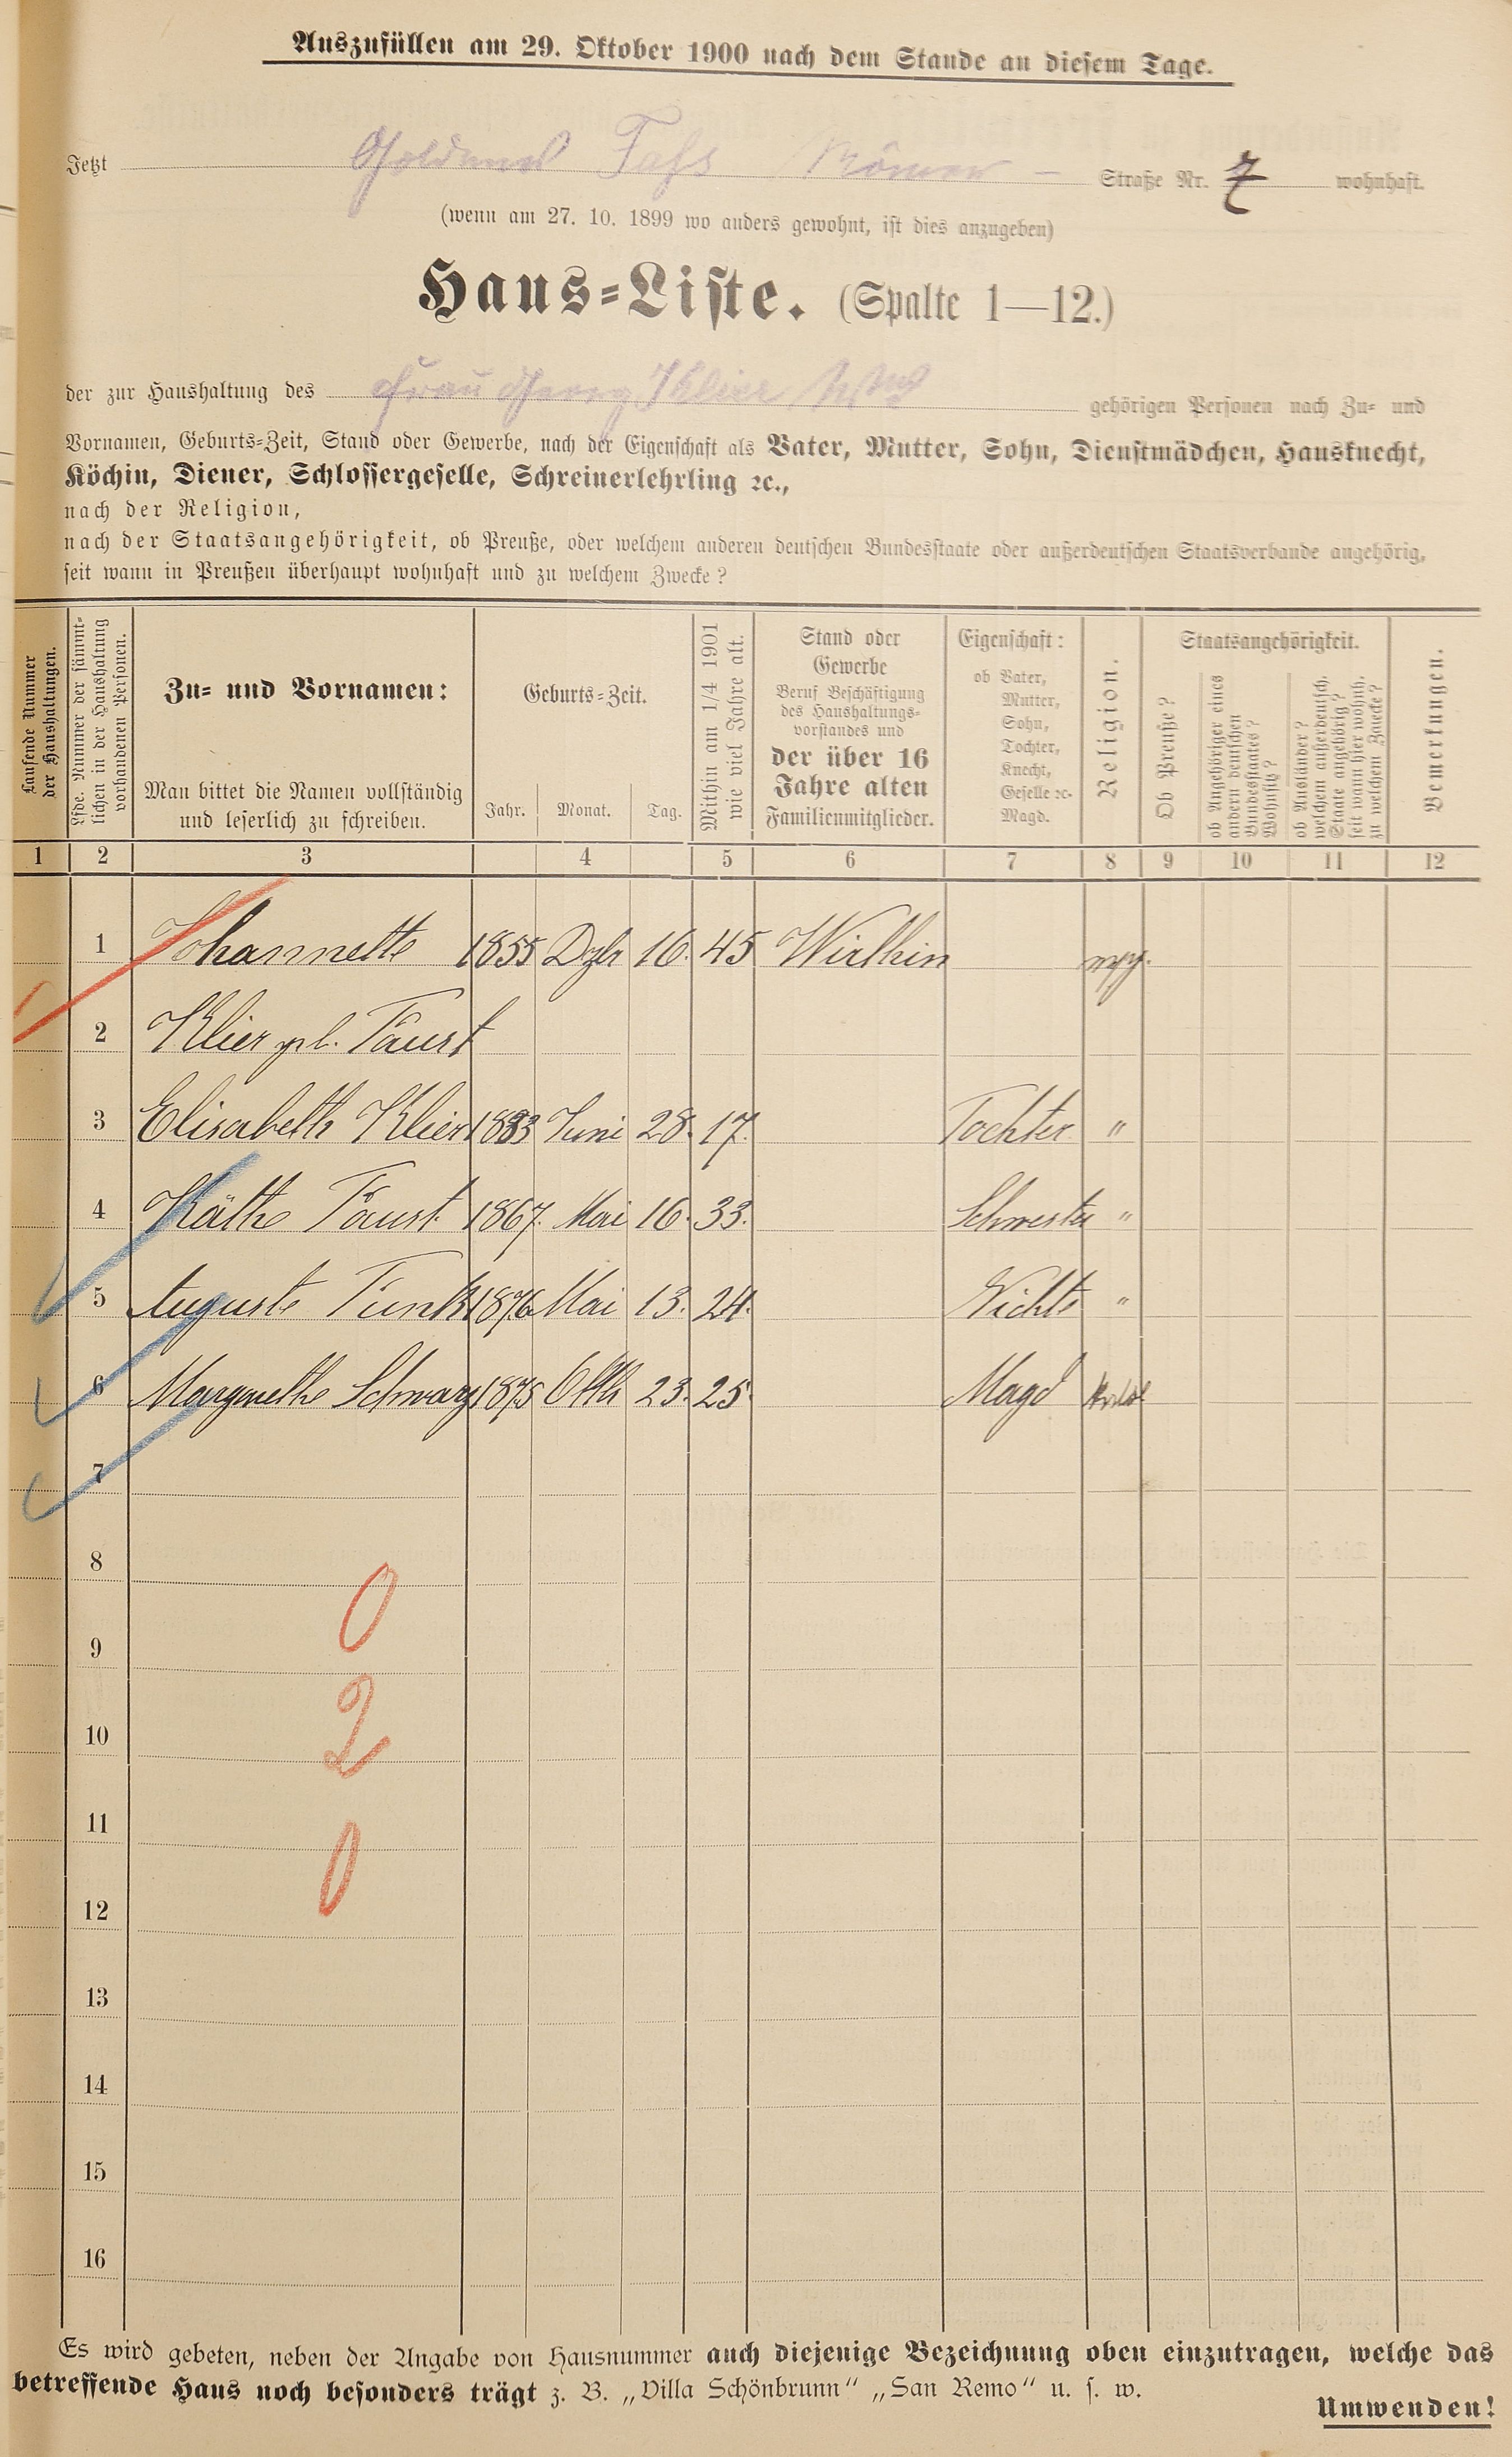 Auszufüllen am 29. Oktober 1900 nach dem Stande an diesem Tage.
Jetzt Goldenes Fass Römer – Straße Nr. 7 wohnhaft.
(wenn am 27. 10. 1899 wo anders gewohnt, ist dies anzugeben)
Haus-Liste. (Spalte 1—12.)
der zur Haushaltung des Frau Georg Klier Wwe gehörigen Personen nach Zu- und
Vornamen, Geburts-Zeit, Stand oder Gewerbe, nach der Eigenschaft als Vater, Mutter, Sohn, Dienstmädchen, Hausknecht,
Köchin, Diener, Schlossergeselle, Schreinerlehrling ꝛc.,
nach der Religion,
nach der Staatsangehörigkeit, ob Preuße, oder welchem anderen deutschen Bundesstaate oder außerdeutschen Staatsverbande angehörig,
seit wann in Preußen überhaupt wohnhaft und zu welchem Zwecke?
Laufende Nummer
der Haushaltungen.
Lfde. Nummer der sämmt-
lichen in der Haushaltung
vorhandenen Personen.
Zu- und Vornamen:
Man bittet die Namen vollständig
und leserlich zu schreiben.
Geburts-Zeit.
Jahr. Monat. Tag.
Mithin am 1/4 1901
wie viel Jahre alt.
Stand oder
Gewerbe
Beruf Beschäftigung
des Haushaltungs-
vorstandes und
der über 16
Jahre alten
Familienmitglieder.
Eigenschaft:
ob Vater,
Mutter,
Sohn,
Tochter,
Knecht,
Geselle ꝛc.
Magd.
Religion.
Staatsangehörigkeit.
Ob Preuße?
ob Angehöriger eines
andern deutschen
Bundesstaates?
Wohnsitz?
ob Ausländer?
welchem außerdeutsch.
Staate angehörig?
seit wann hier wohnh.
zu welchem Zwecke?
Bemerkungen.
1 2 3 4 5 6 7 8 9 10 11 12
1 Johannette 1855 Dzbr 16. 45 Wirthin
2 Klier geb. Faust
3 Elisabeth Klier 1883 Juni 28. 17. Tochter "
4 Käthe Faust 1867. Mai 16. 33. Schwester "
5 Auguste Funk 1876 Mai 13. 24. Nichte "
6 Margarethe Schwarz 1875 Oktb 23. 25. Magd
7
8
0
9
2
10
11
0
12
13
14
15
16
Es wird gebeten, neben der Angabe von Hausnummer auch diejenige Bezeichnung oben einzutragen, welche das
betreffende Haus noch besonders trägt z. B. „Villa Schönbrunn" „San Remo" u. s. w.
Umwenden!